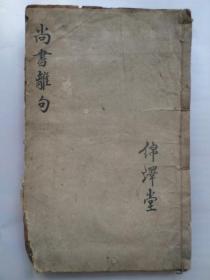 尚書離句
錦澤堂